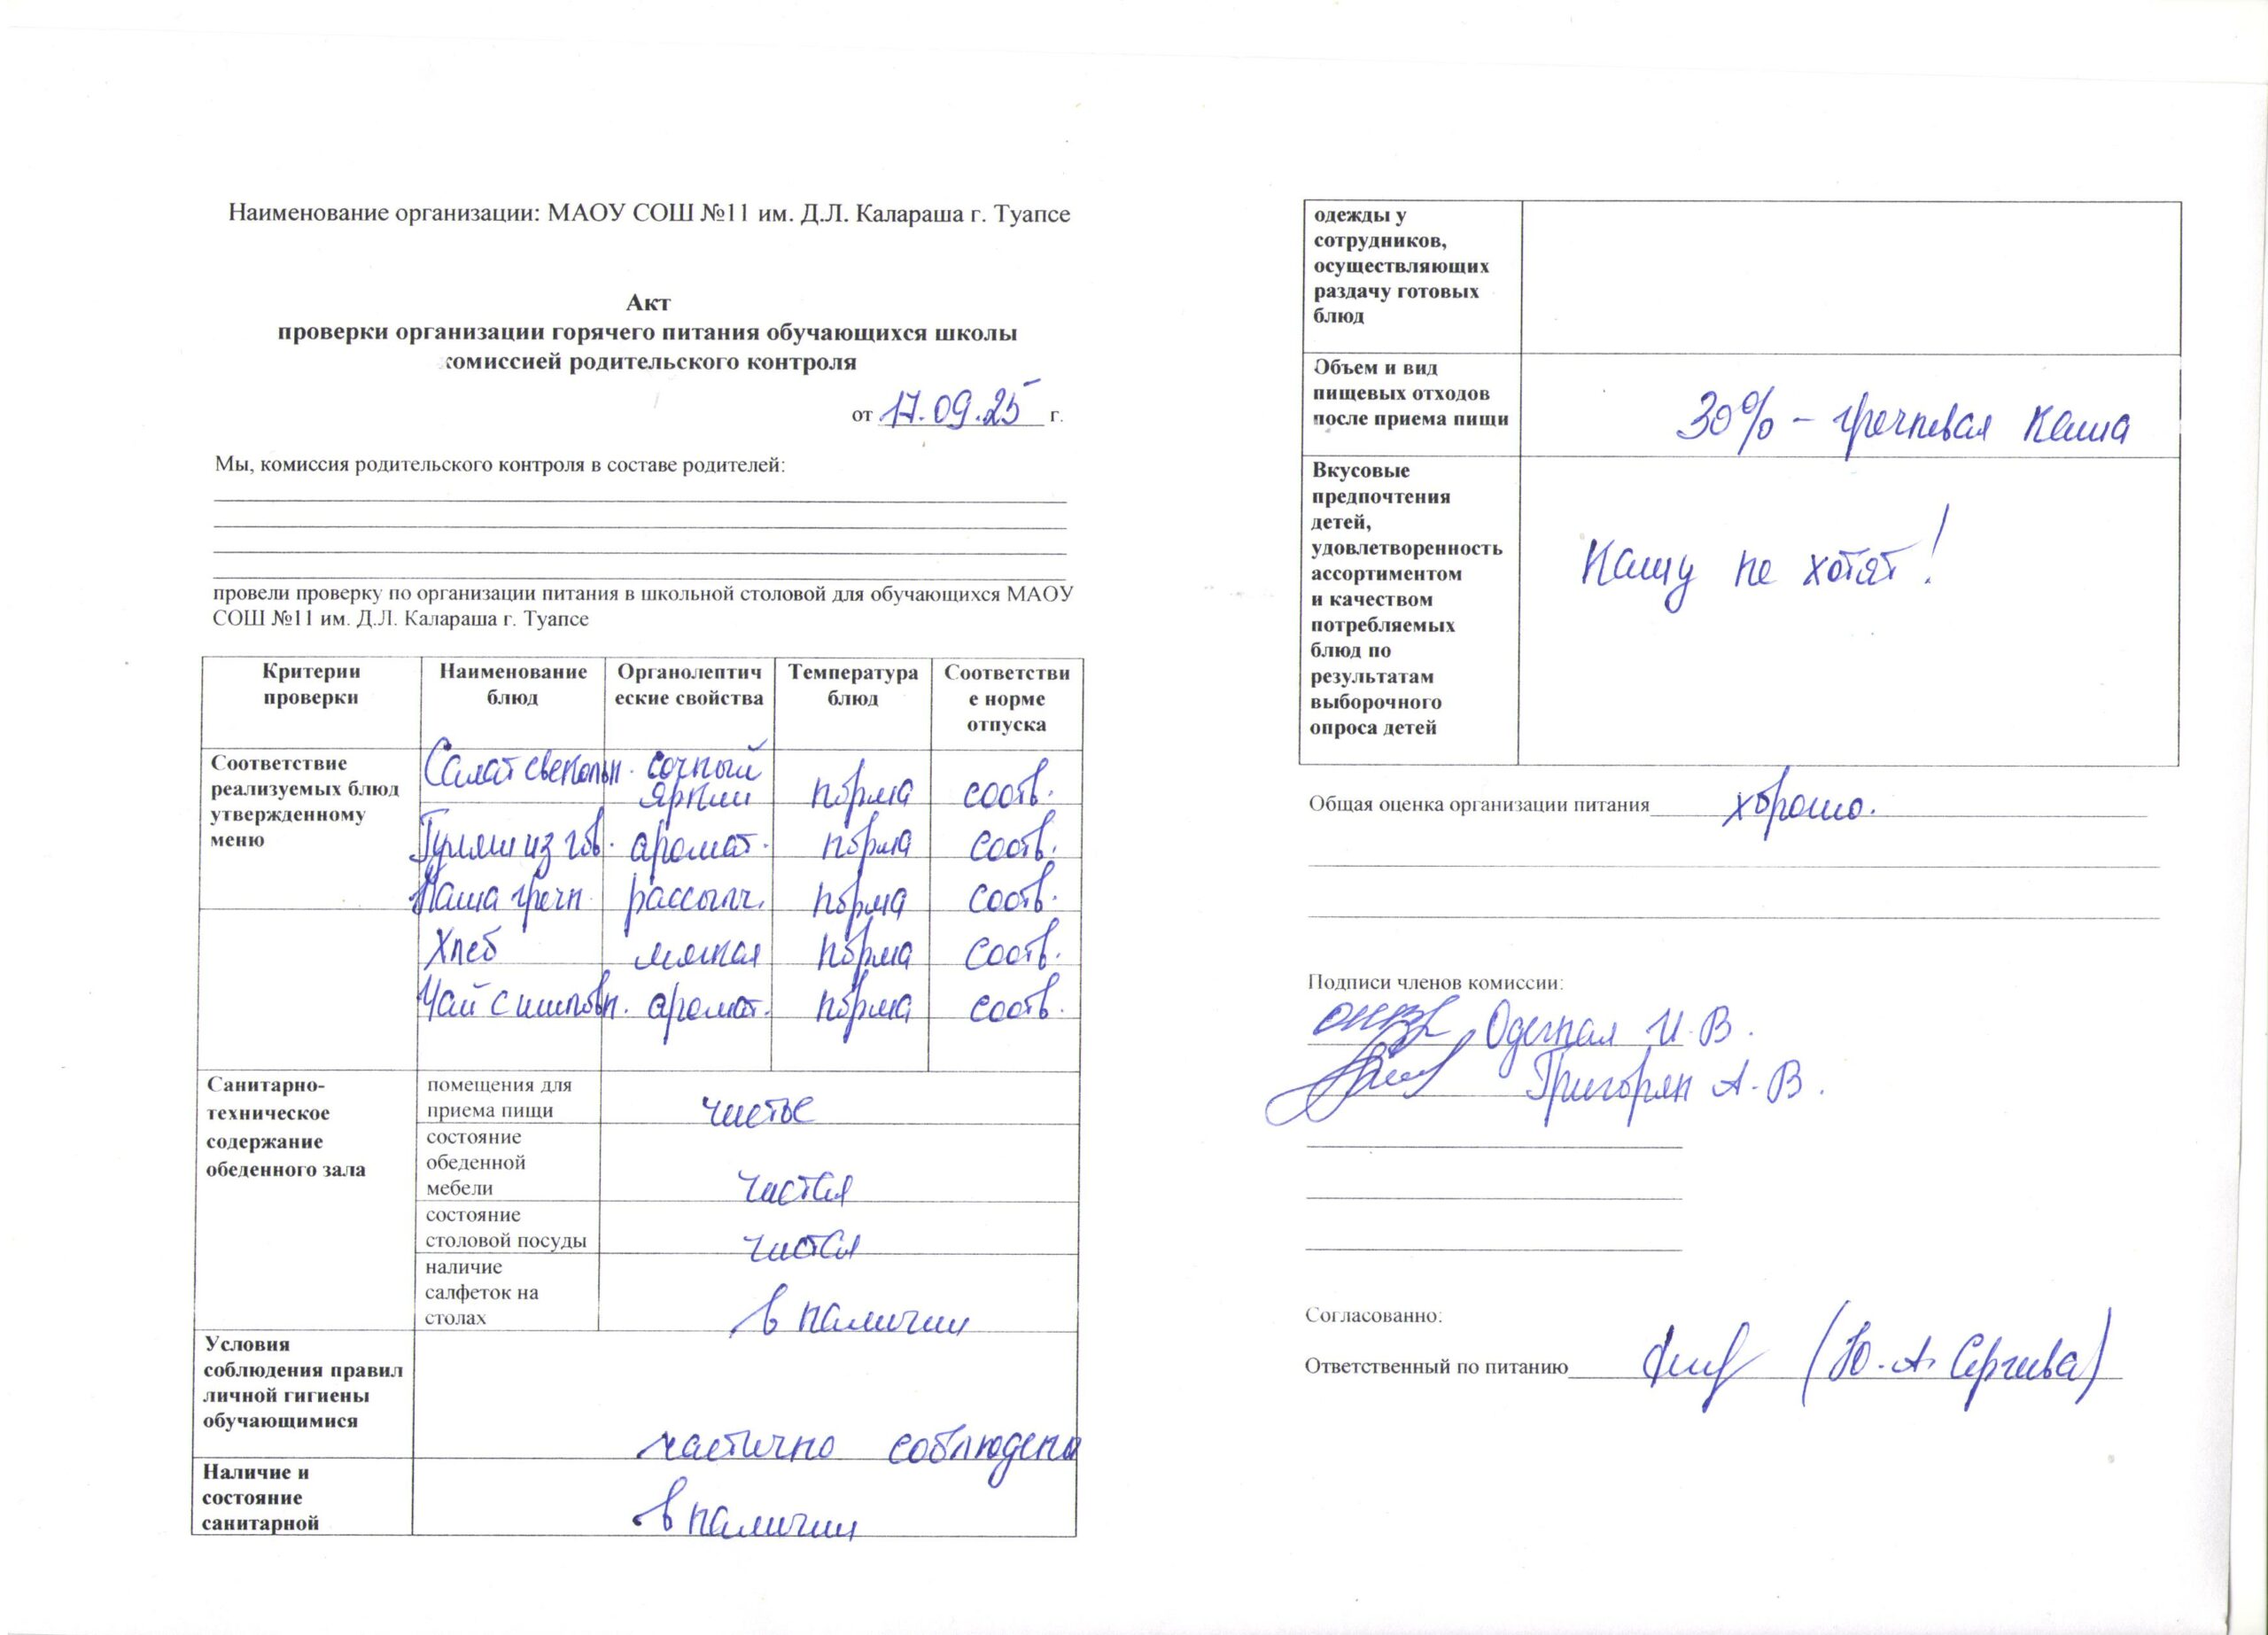 Наименование организации: МАОУ СОШ №11 им. Д.Л. Калараша г. Туапсе
Акт
проверки организации горячего питания обучающихся школы
комиссией родительского контроля
от 17.09.25 г.
Мы, комиссия родительского контроля в составе родителей:
провели проверку по организации питания в школьной столовой для обучающихся МАОУ
СОШ №11 им. Д.Л. Калараша г. Туапсе
Критерии проверки
Наименование блюд
Органолептические свойства
Температура блюд
Соответствие норме отпуска
Соответствие
реализуемых блюд
утвержденному
меню
Салат свекольн. сочный яркий норма соотв.
Гуляш из гов. аромат. норма соотв.
Каша гречн. рассыпч. норма соотв.
Хлеб мягкая норма соотв.
Чай с шиповн. аромат. норма соотв.
Санитарно-
техническое
содержание
обеденного зала
помещения для
приема пищи
чистые
состояние
обеденной
мебели
чистая
состояние
столовой посуды
чистая
наличие
салфеток на
столах
в наличии
Условия
соблюдения правил
личной гигиены
обучающимися
частично соблюдена
Наличие и
состояние
санитарной
в наличии
одежды у
сотрудников,
осуществляющих
раздачу готовых
блюд
Объем и вид
пищевых отходов
после приема пищи
30% - гречневая каша
Вкусовые
предпочтения
детей,
удовлетворенность
ассортиментом
и качеством
потребляемых
блюд по
результатам
выборочного
опроса детей
Кашу не хотят!
Общая оценка организации питания хорошо.
Подписи членов комиссии:
И.В.
Григорян А.В.
Согласованно:
Ответственный по питанию (Ю.А. Сергеева)